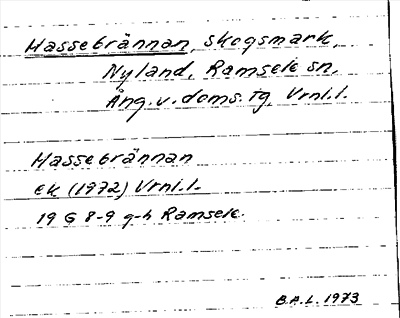 Hassebrännan, skogsmark,
Nyland, Ramsele sn,
Ång. v. doms. tg, Vrnl. l.
Hassebrännan
ek (1972) Vrnl. l.
19 G 8-9 g-h Ramsele.
B.A.L. 1973